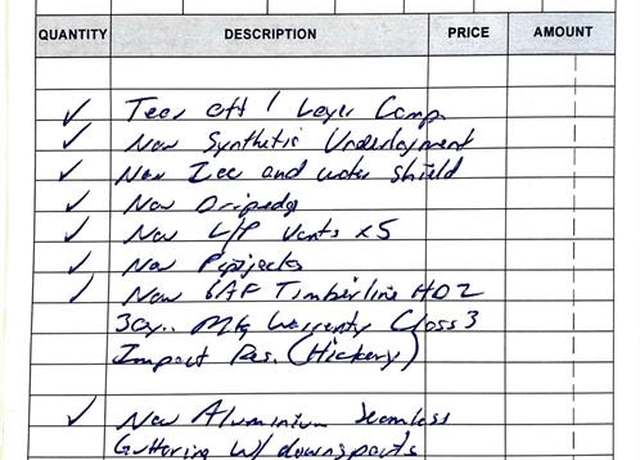 QUANTITY DESCRIPTION PRICE AMOUNT
✓ Tear off 1 Layer Comp.
✓ New Synthetic Underlayment
✓ New Ice and water shield
✓ New Dripedge
✓ New L/P Vents x5
✓ New Pipejacks
✓ New GAF Timberline HDZ
30y.. Mfg Warranty Class 3
Impact Res. (Hickery)
✓ New Aluminium Seamless
Guttering w/ downspouts